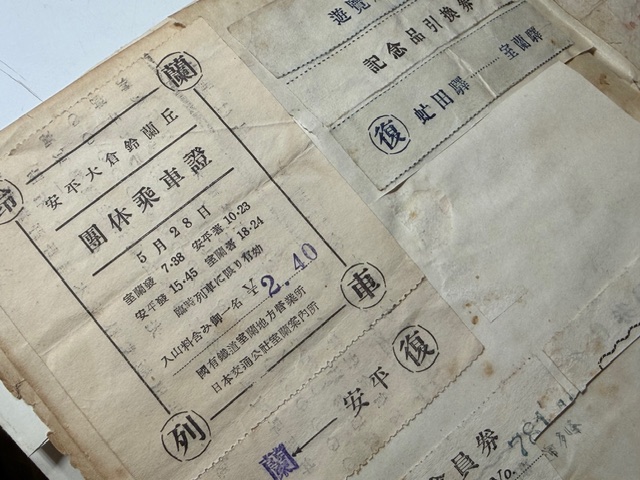 鈴
蘭
安平大倉鈴蘭丘
團体乗車證
5月28日
室蘭發 7.38 安平著 10.23
安平發 15.45 室蘭著 18.24
臨時列車に限り有効
入山料含み御一名 ¥2.40
國有鐵道室蘭地方營業所
日本交通公社室蘭案内所
列
車
復
安平
蘭
遊覽
記念品引換券
復 虻田驛 室蘭驛
會員券
No.